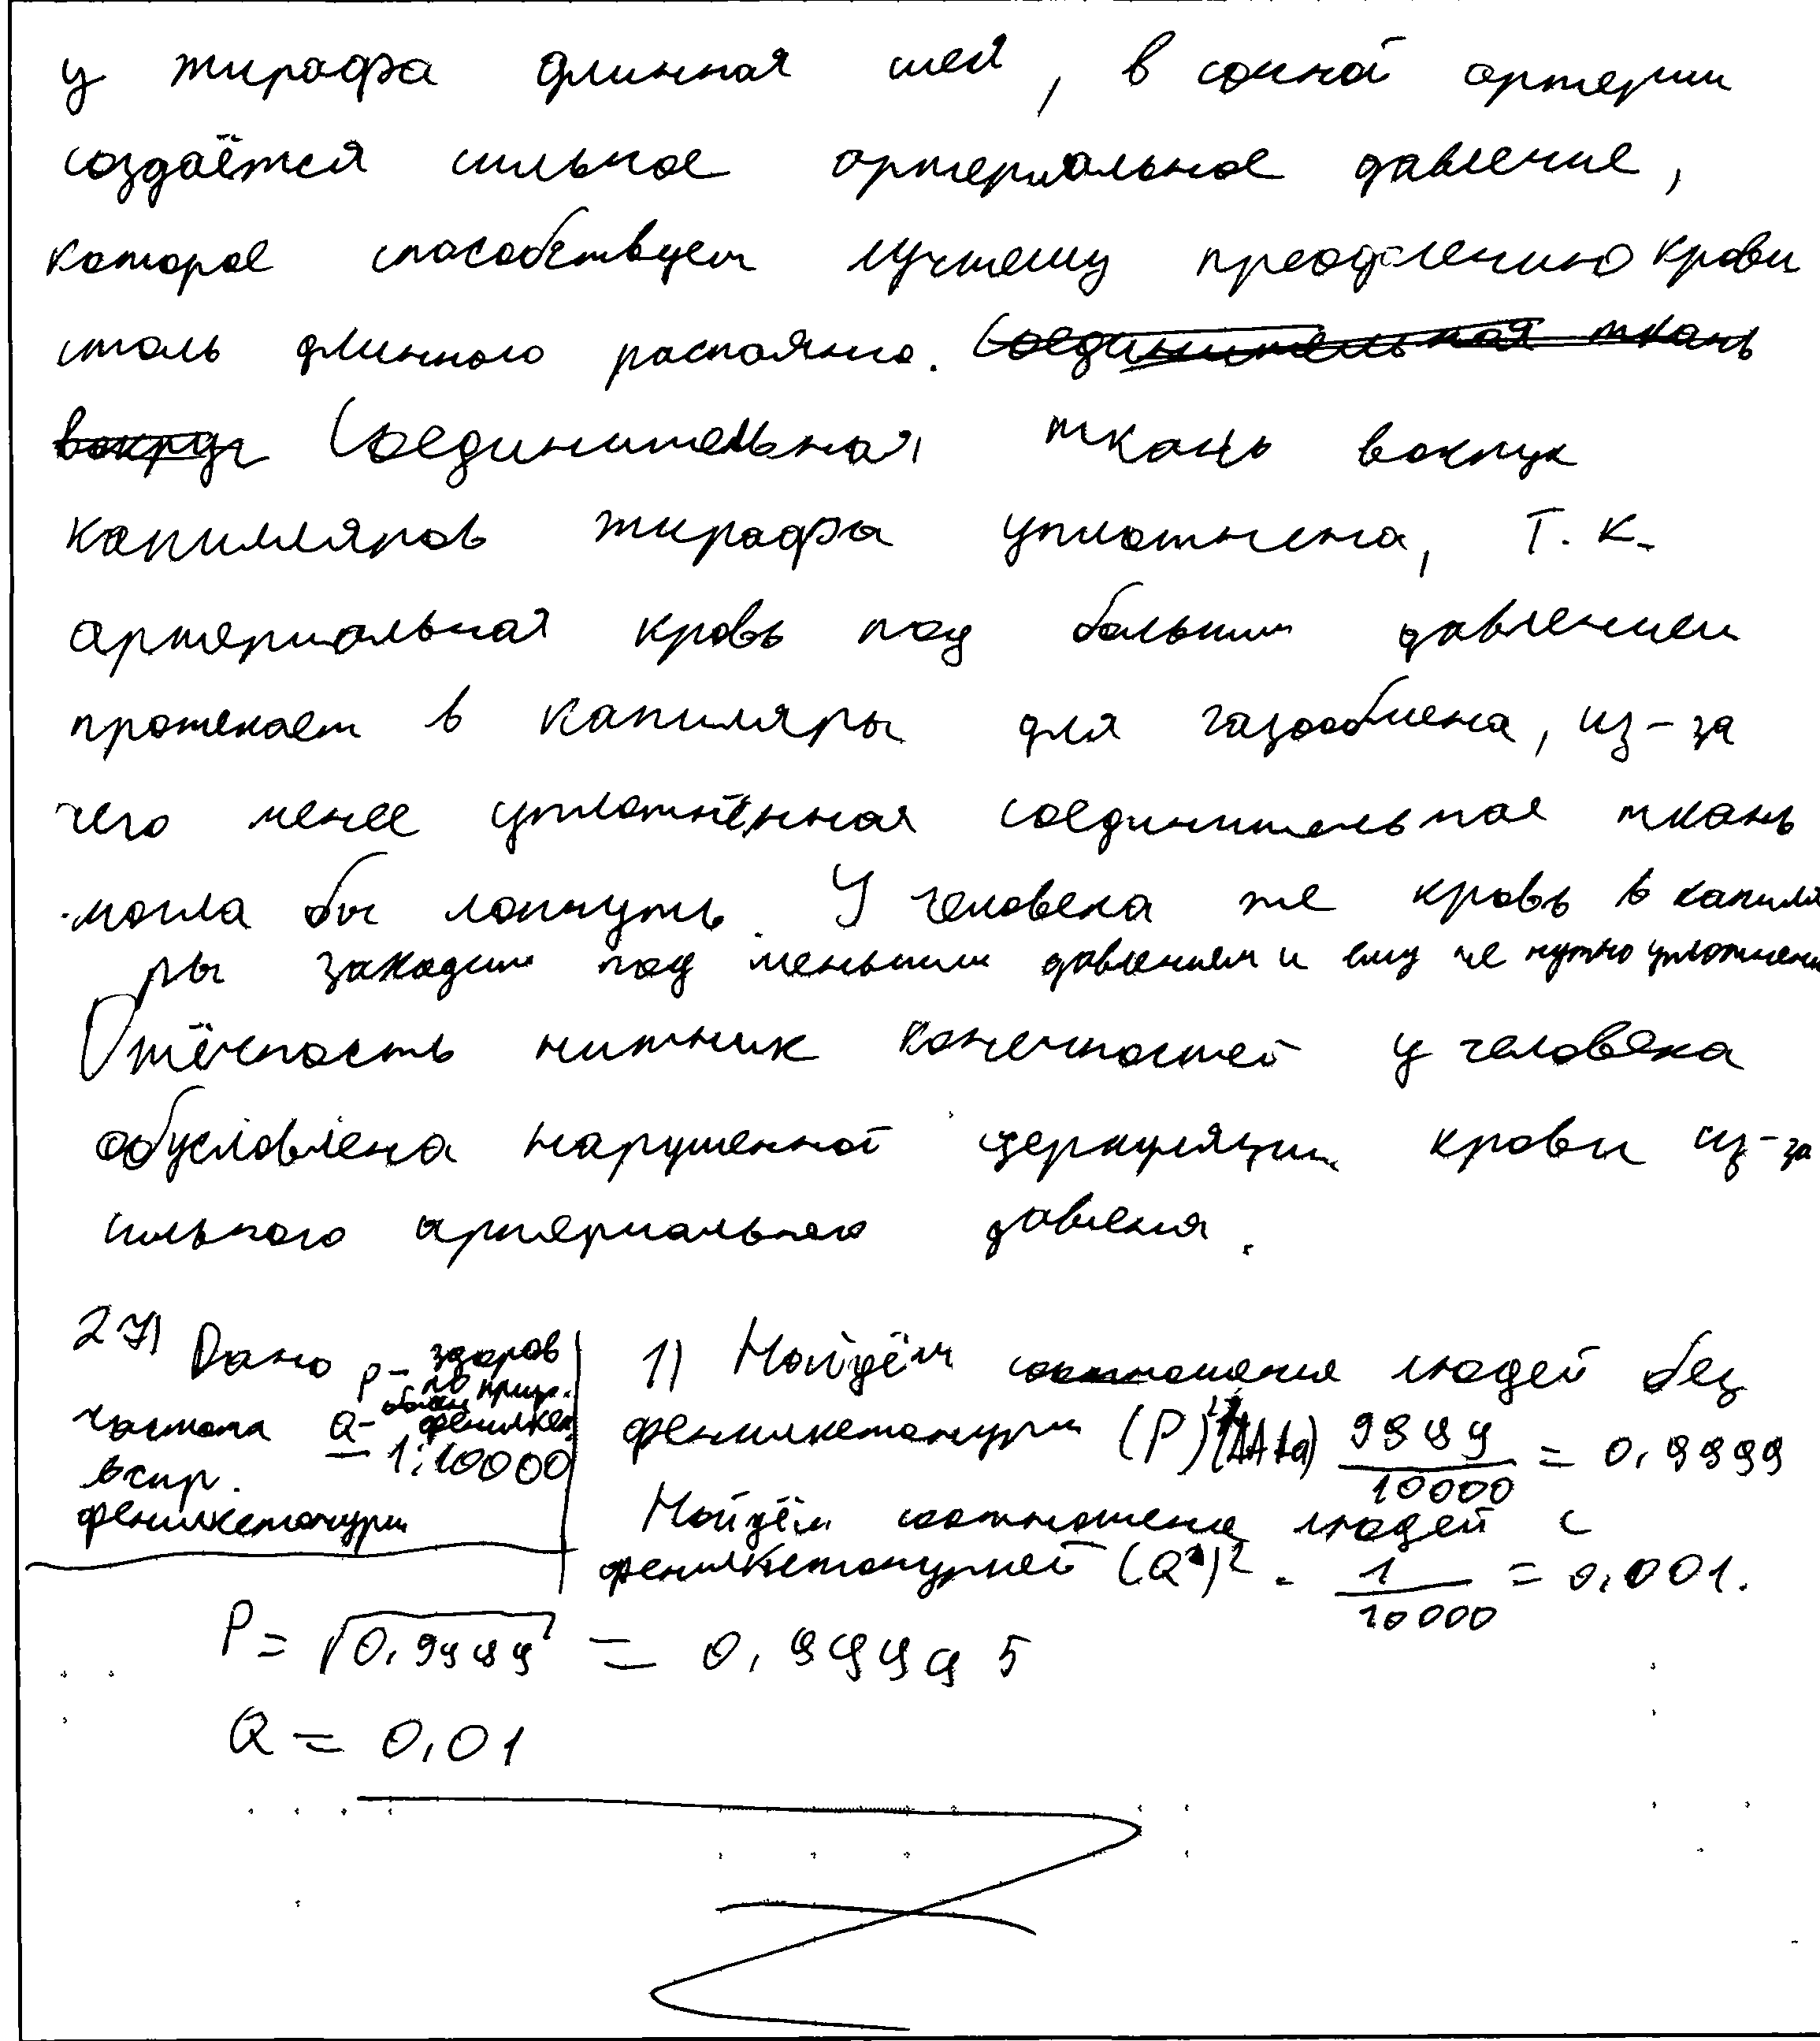 у жирафа длинная шея, в сонной артерии
создаётся сильное артериальное давление,
которое способствует лучшему преодолению крови
столь длинного растояния. ~~Соединительная ткань~~
~~вокруг~~ Соединительная ткань вокруг
капилляров жирафа уплотнена, т.к.
артериальная кровь под большим давлением
протекает в капиляры для газообмена, из-за
чего менее уплотнённая соединительная ткань
могла бы лопнуть. У человека же кровь в капиля
ры заходит под меньшим давлением и ему не нужно уплотнение
Отёчность нижних конечностей у человека
обусловлена нарушенной церкуляции крови из-за
сильного артериального давления.
27) Дано P - здоров по призн.
частота Q - фенилкет.
встр. - 1:10000
фенилкетонурии
1) Найдём соотношения людей без
фенилкетонурии (P) (AA Aa) 9999/10000 = 0,9999
Найдём соотношение людей с
фенилкетонурией (Q)² = 1/10000 = 0,001.
P = √0,9999 = 0,99995
Q = 0,01